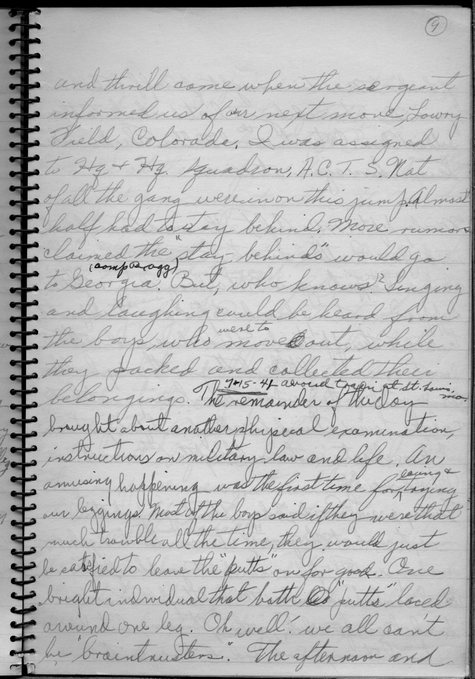 9
and thrill came when the sergeant
informed us of our next move, Lowry
Field, Colorado. I was assigned
to Hq & Hq. Squadron, A.C.T.S. Not
of all the gang were in on this jump. Almost
half had to stay behind. More rumors
claimed the "stay behinds" would go
(Camp Bragg)
to Georgia. But, who knows? Singing
and laughing could be heard from
were to
the boys, who move out, while
they packed and collected their
7-15-41 aboard train at St. Louis, Mo.
belongings. The remainder of the day
brought about another physical examination,
instructions on military law and life. An
lacing &
amusing happening was the first time for trying
our leggings. Most of the boys said if they were that
much trouble all the time, they would just
be satisfied to leave the "putts" on for good. One
bright individual had both "putts" laced
around one leg. Oh well! we all can't
be "braintrusters". The afternoon and